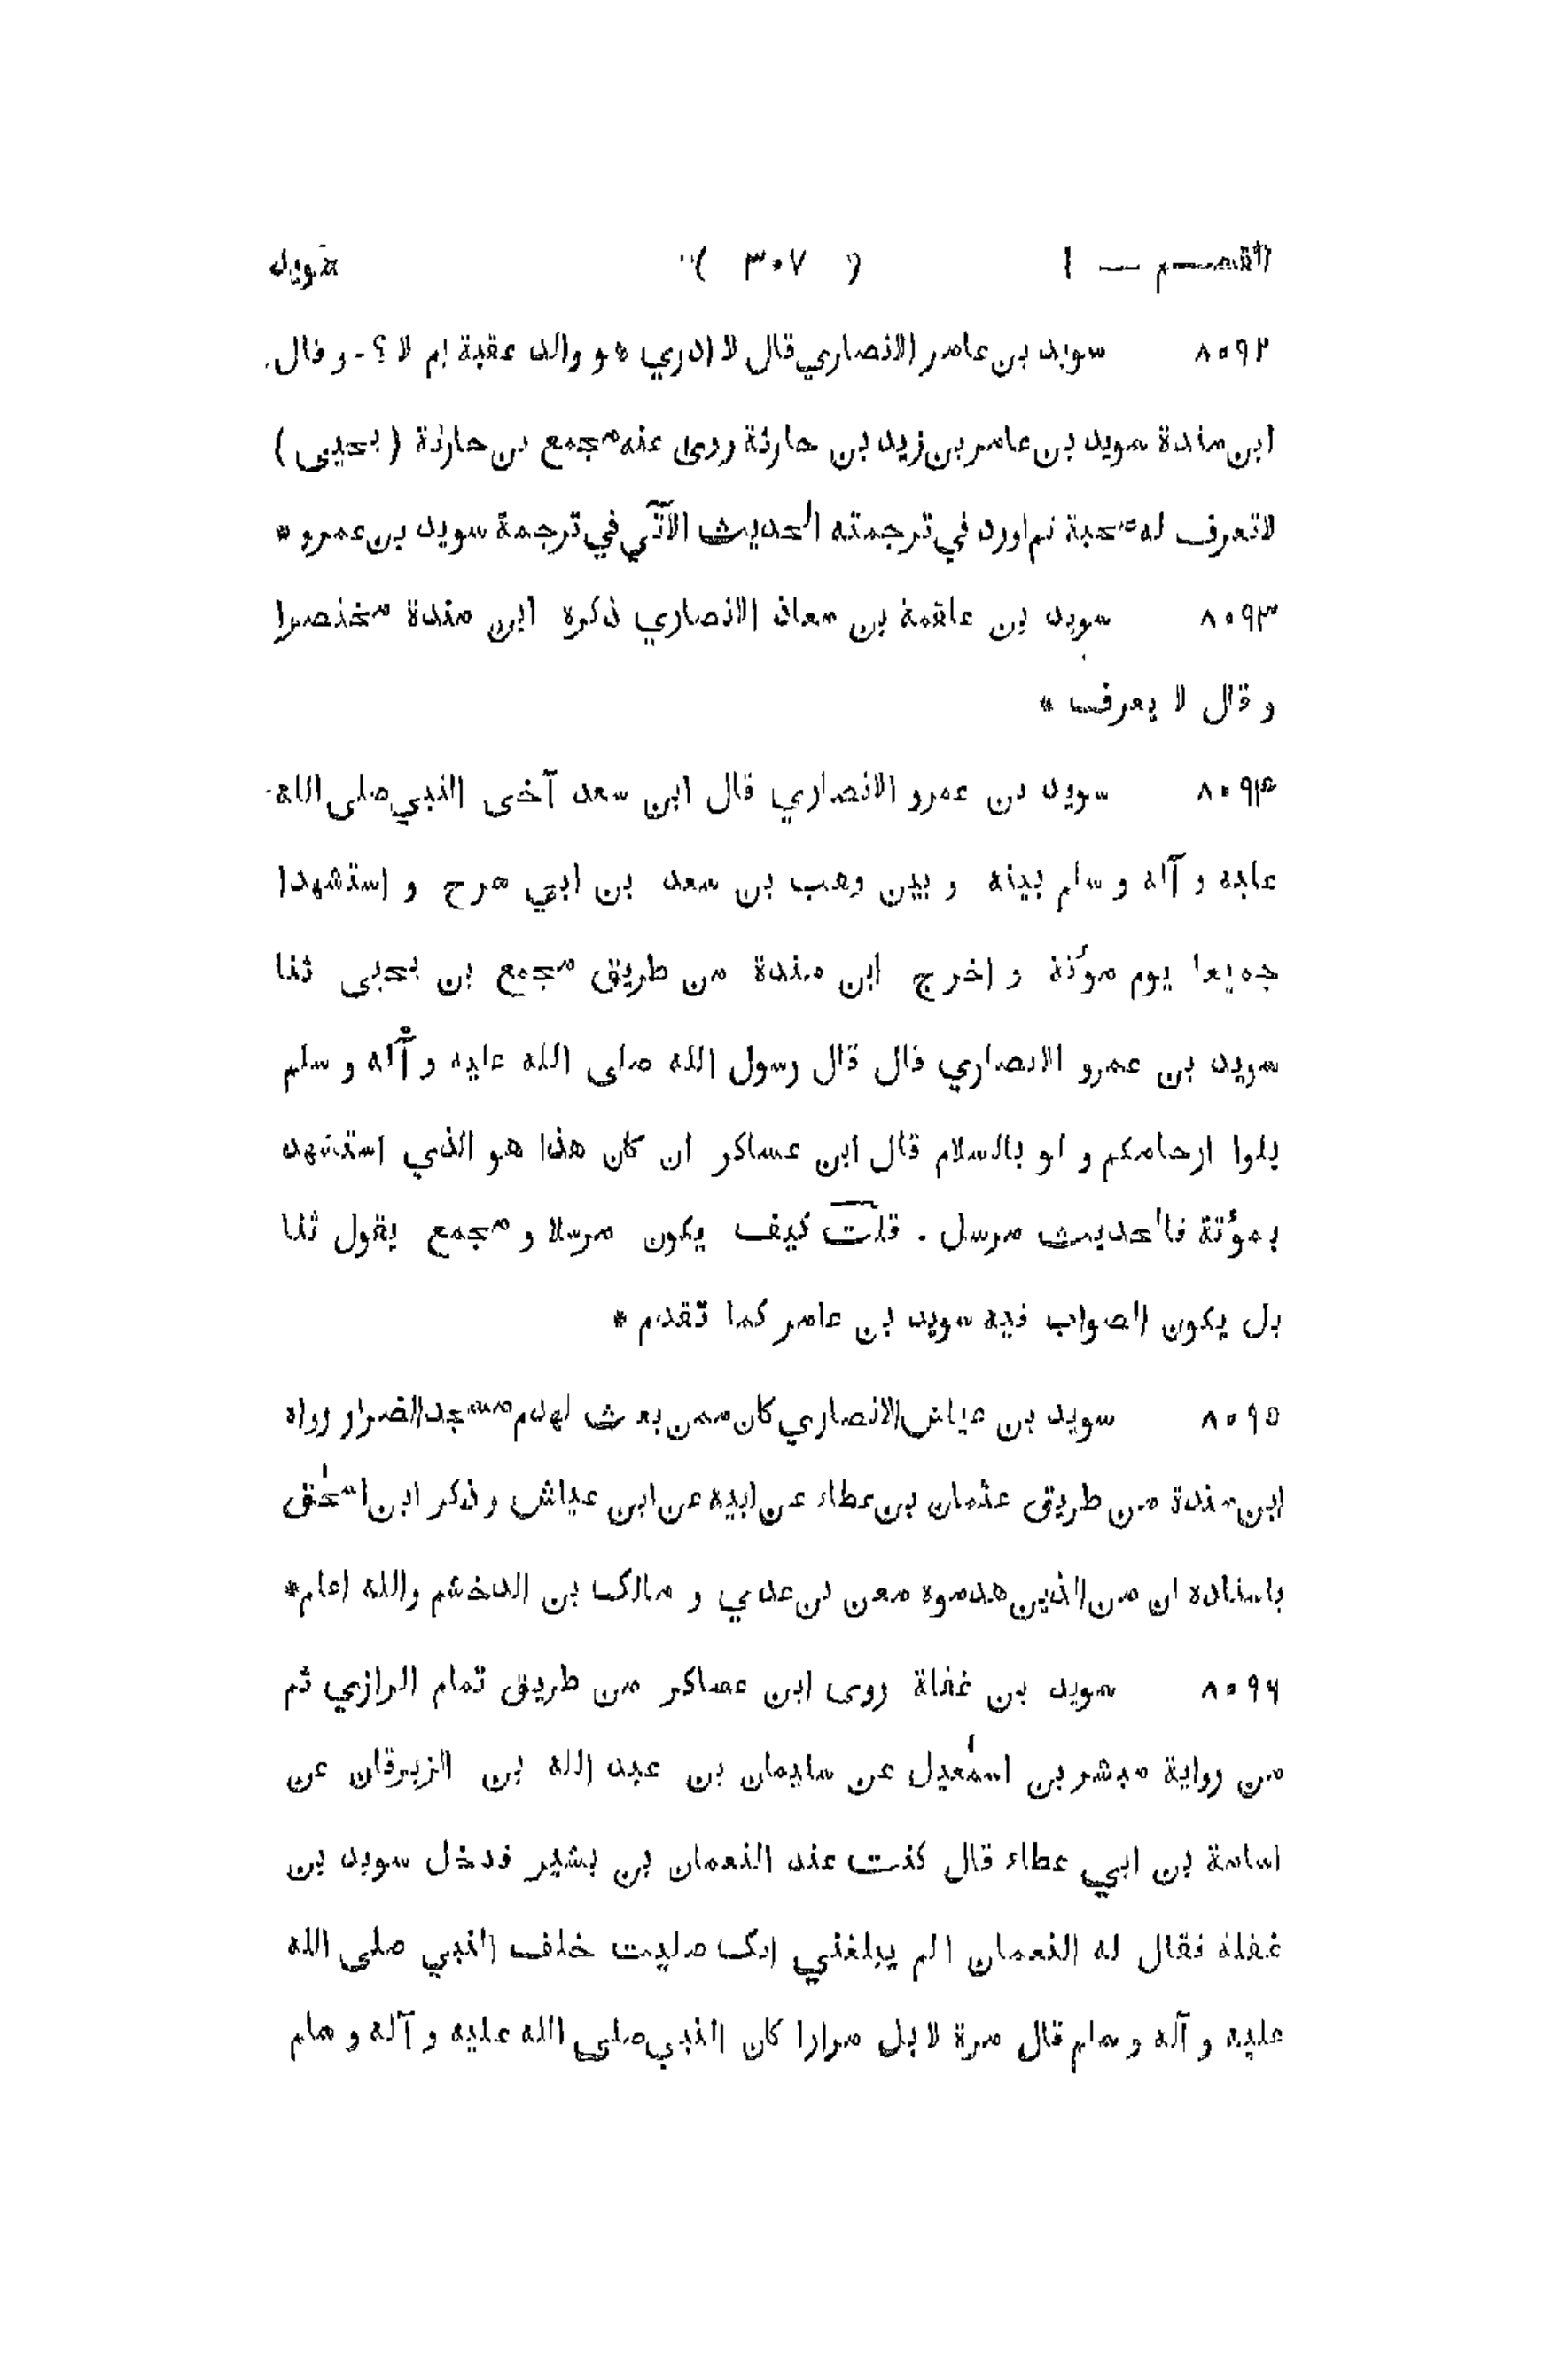 القسم — ١ ( ٣٠٧ ) سويد
٨٥٩٢ سويد بن عامر الانصاري قال لا ادري هو والد عقبة ام لا ؟ - و قال
ابن مندة سويد بن عامر بن زيد بن حارثة روى عنه مجمع بن حارثة ( يحيى )
لا تعرف له صحبة ثم اورد في ترجمته الحديث الآتي في ترجمة سويد بن عمرو *
٨٥٩٣ سويد بن علقمة بن معاذ الانصاري ذكره ابن مندة مختصرا
و قال لا يعرف *
٨٥٩٤ سويد بن عمرو الانصاري قال ابن سعد آخى النبي صلى الله
عليه و آله و سلم بينه و بين وهب بن سعد بن ابي سرح و استشهدا
جميعا يوم موتة و اخرج ابن مندة من طريق مجمع بن يحيى ثنا
سويد بن عمرو الانصاري قال قال رسول الله صلى الله عليه و آله و سلم
بلوا ارحامكم و لو بالسلام قال ابن عساكر ان كان هذا هو الذي استشهد
بموتة فالحديث مرسل . قلت كيف يكون مرسلا و مجمع يقول ثنا
بل يكون الصواب فيه سويد بن عامر كما تقدم *
٨٥٩٥ سويد بن عياش الانصاري كان ممن بعث لهدم مسجد الضرار رواه
ابن مندة من طريق عثمان بن عطاء عن ابيه عن ابن عياش و ذكر ابن اسحٰق
باسناده ان من الذين هدموه معن بن عدي و مالك بن الدخشم والله اعلم *
٨٥٩٦ سويد بن غفلة روى ابن عساكر من طريق تمام الرازي ثم
من رواية مبشر بن اسمٰعيل عن سليمان بن عبد الله بن الزبرقان عن
اسامة بن ابي عطاء قال كنت عند النعمان بن بشير فدخل سويد بن
غفلة فقال له النعمان الم يبلغني انك صليت خلف النبي صلى الله
عليه و آله و سلم قال مرة لا بل مرارا كان النبي صلى الله عليه و آله و سلم